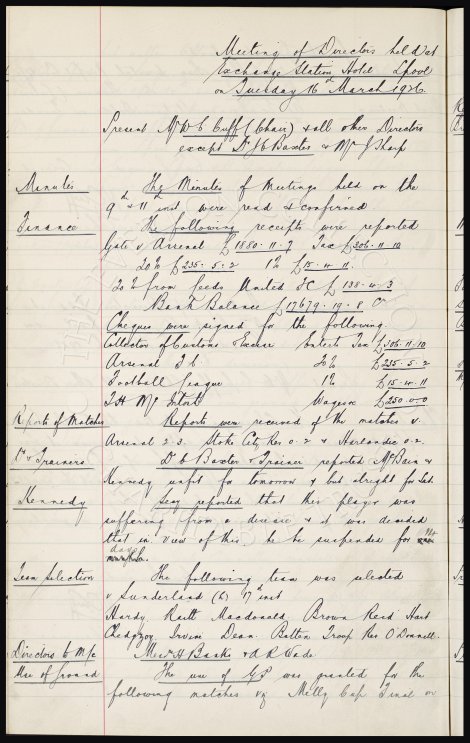 Meeting of Directors held at
Exchange Station Hotel L'pool
on Tuesday 16th March 1926
Present Mr W C Cuff (Chair) & all other Directors
except Dr J C Baxter & Mr J Sharp
Minutes
The Minutes of Meetings held on the
9th & 11th inst were read & confirmed
Finance
The following receipts were reported
Gate v Arsenal £1880-11-7 Tax £306-11-10
20% £235-5-2 1% £15-4-11
20% from Leeds United FC £138-4-3
Bank Balance £17679-19-8 Cr
Cheques were signed for the following
Collector of Customs & Excise Entertt Tax £306-11-10
Arsenal F.C. 20% £235-5-2
Football League 1% £15-4-11
T.H. McIntosh Wages £250-0-0
Reports of Matches
Reports were received of the matches v.
Arsenal 2-3. Stoke City Res 0-2 & Harlandic 0-2.
Dr & Trainers
Dr Baxter & Trainer reported McBain &
Kennedy unfit for tomorrow & but alright for Sat.
Kennedy
Secy reported that this player was
suffering from a disease & it was decided
that in view of this he be suspended for
days
Team Selection
The following team was selected
v Sunderland (h) 17th inst
Hardy Raitt Macdonald Brown Reid Hart
Chedgzoy Irvine Dean Batten Troup Res O'Donnell.
Directors to M/c
Messrs H Banks & A R Wade.
Use of Ground
The use of GP was granted for the
following matches viz Melly Cup Final on